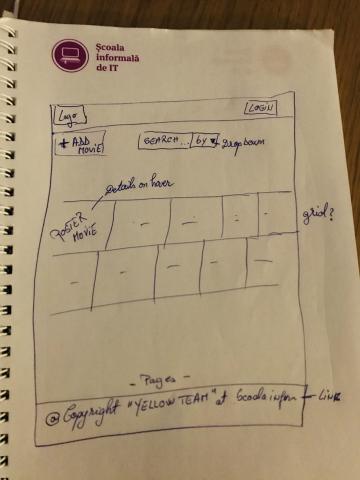 Școala
informală
de IT
Logo
LOGIN
+ ADD
MOVIE
SEARCH... by ▾ Dropdown
Details on hover
POSTER
MOVIE
grid?
- Pages -
@ Copyright "YELLOW TEAM" at Scoala inform
LINK